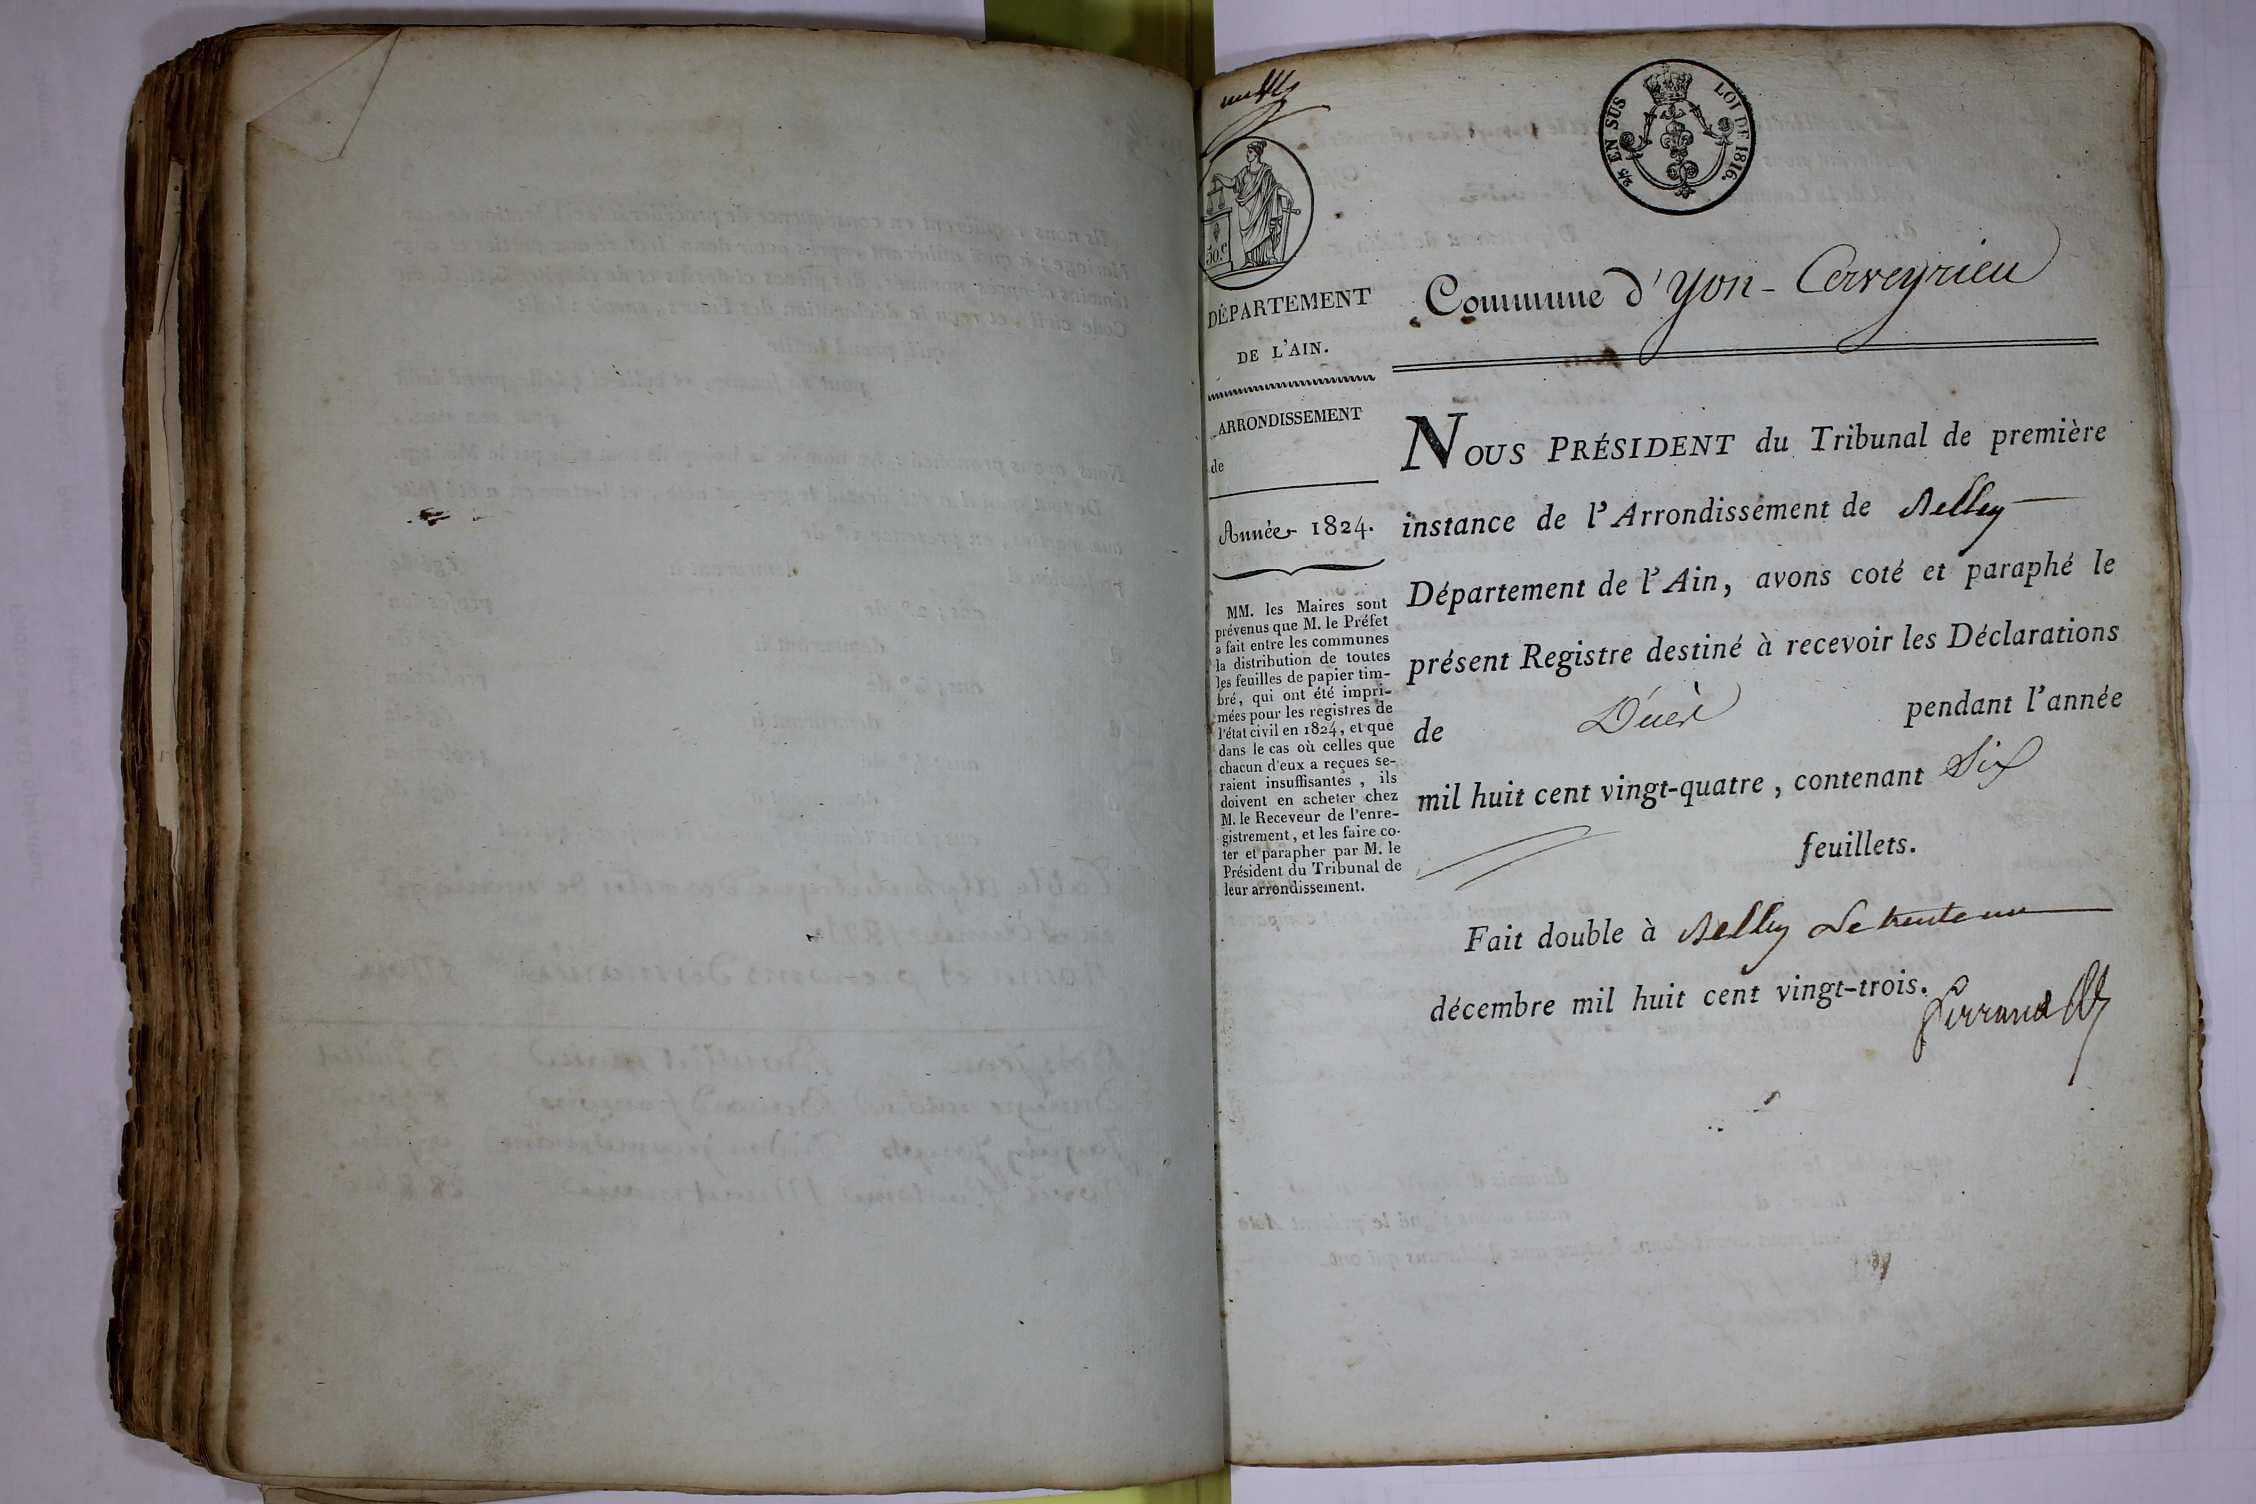 2/5 EN SUS
LOI DE 1816.
50.c
DÉPARTEMENT
DE L'AIN.
ARRONDISSEMENT
de
Année 1824.
MM. les Maires sont
prévenus que M. le Préfet
a fait entre les communes
la distribution de toutes
les feuilles de papier tim-
bré, qui ont été impri-
mées pour les registres de
l'état civil en 1824, et que
dans le cas où celles que
chacun d'eux a reçues se-
raient insuffisantes, ils
doivent en acheter chez
M. le Receveur de l'enre-
gistrement, et les faire co-
ter et parapher par M. le
Président du Tribunal de
leur arrondissement.
Commune d'Yon-Cerveyrieu
NOUS PRÉSIDENT du Tribunal de première
instance de l'Arrondissement de Belley
Département de l'Ain, avons coté et paraphé le
présent Registre destiné à recevoir les Déclarations
de Décès pendant l'année
mil huit cent vingt-quatre, contenant Six
feuillets.
Fait double à Belley Le trente un
décembre mil huit cent vingt-trois.